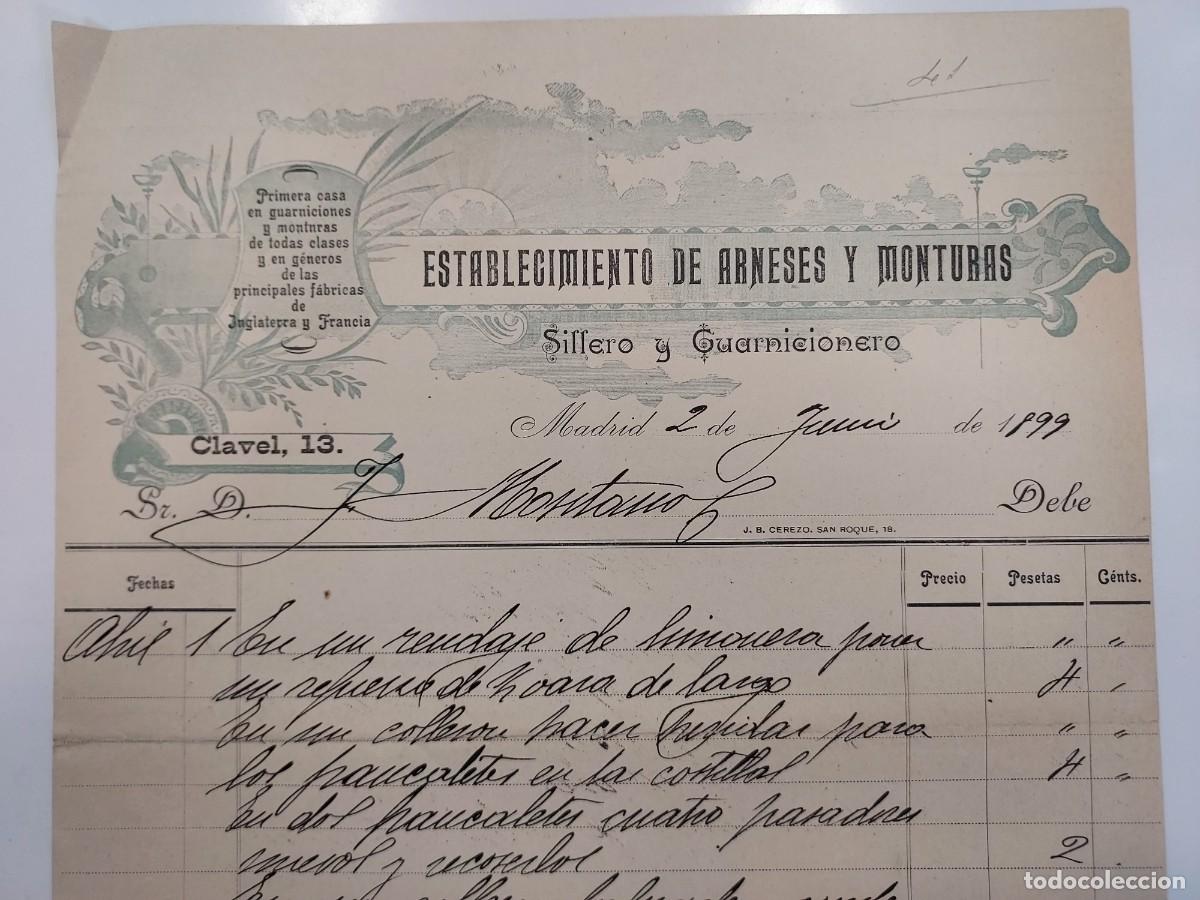 41
Primera casa
en guarniciones
y montnras
de todas clases
y en géneros
de las
principales fábricas
de
Jnglaterra y Francia
ESTABLECIMIENTO DE ARNESES Y MONTURAS
Sillero y Guarnicionero
Clavel, 13.
Madrid 2 de Junio de 1899
Sr. D. J. Montano Debe
J. B. CEREZO. SAN ROQUE, 18.
Fechas Precio Pesetas Cénts.
Abril 1 En un rendaje de limonera poner " "
un refuerzo de vara de largo 4 "
En un colleron hacer hevillas para " "
los francaletes en las costillas 4 "
En dos francaletes cuatro pasadores
nuevos y recoserlos 2
En un
todocoleccion